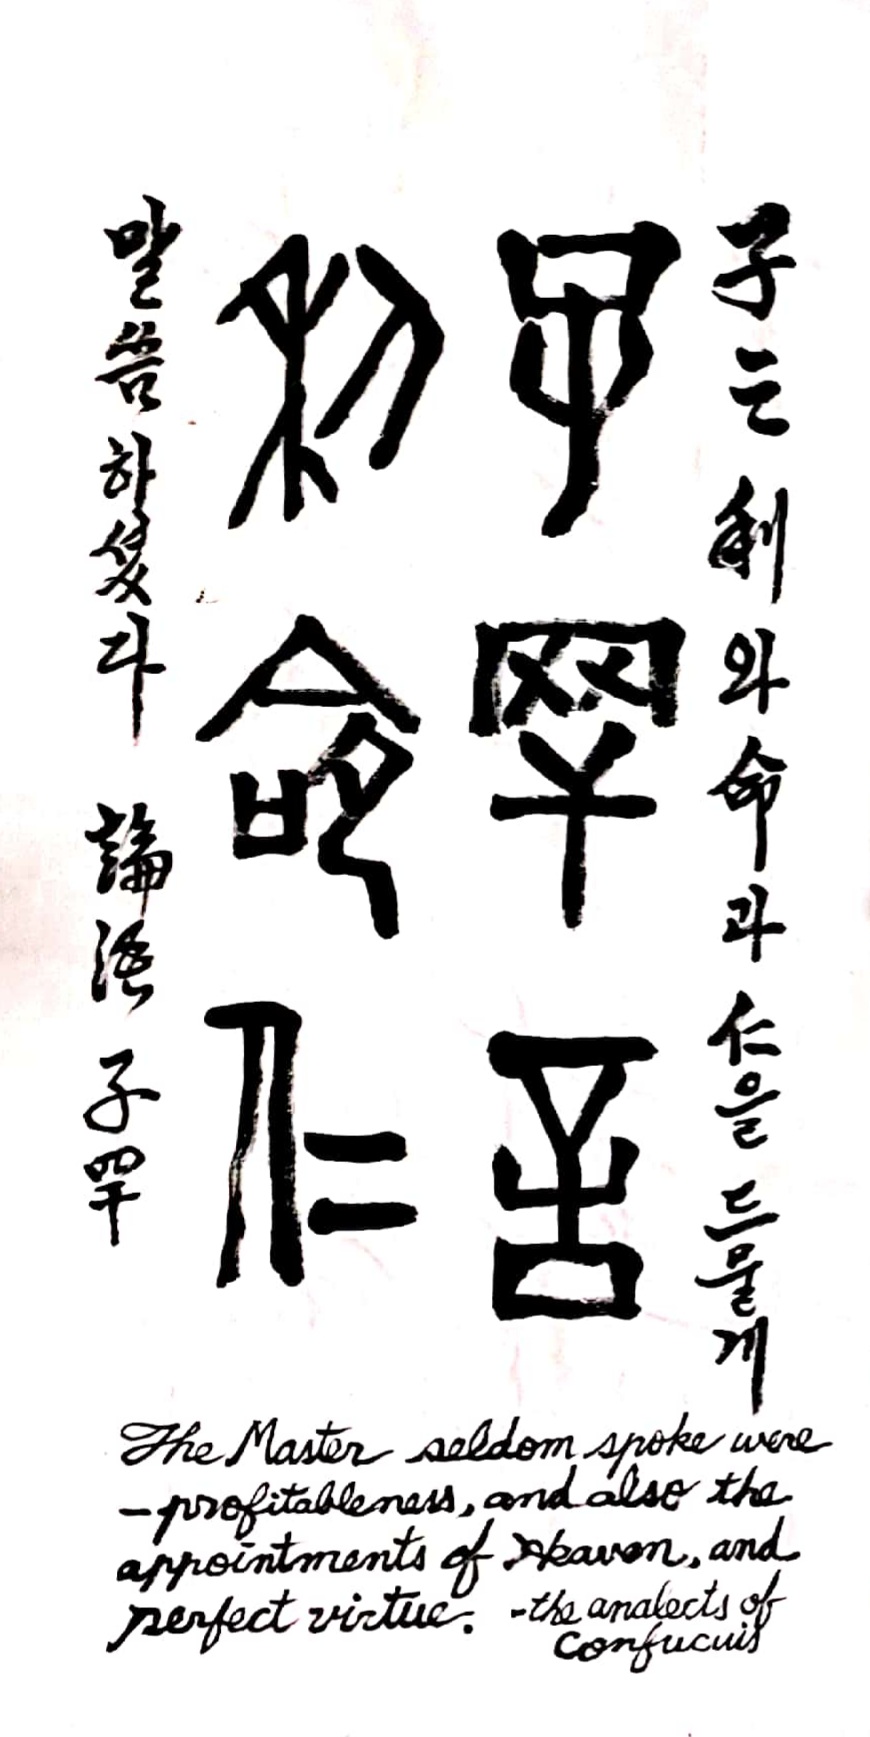 子는 利와 命과 仁을 드물게
子罕言
利命仁
말씀하셨다 論語 子罕
The Master seldom spoke were
- profitableness, and also the
appointments of Heaven, and
perfect virtue. - the analects of
Confucuis